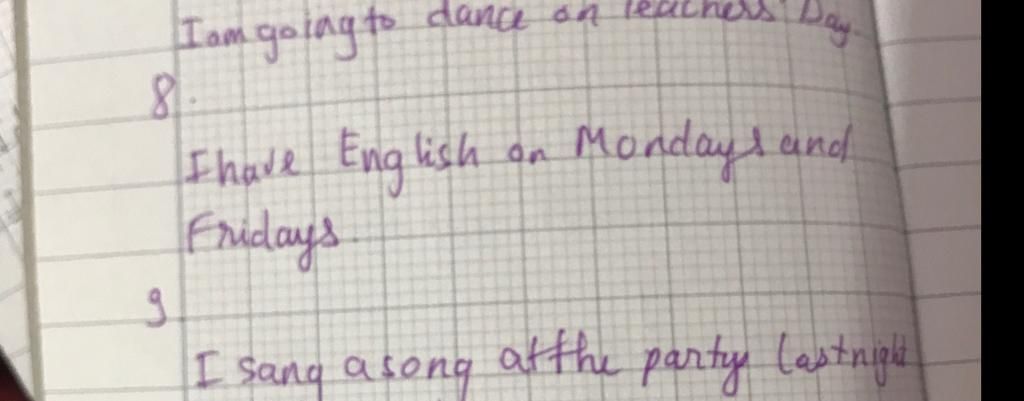 I am going to dance on teachers' Day.
8.
I have English on Mondays and
Fridays.
9
I sang a song at the party last night